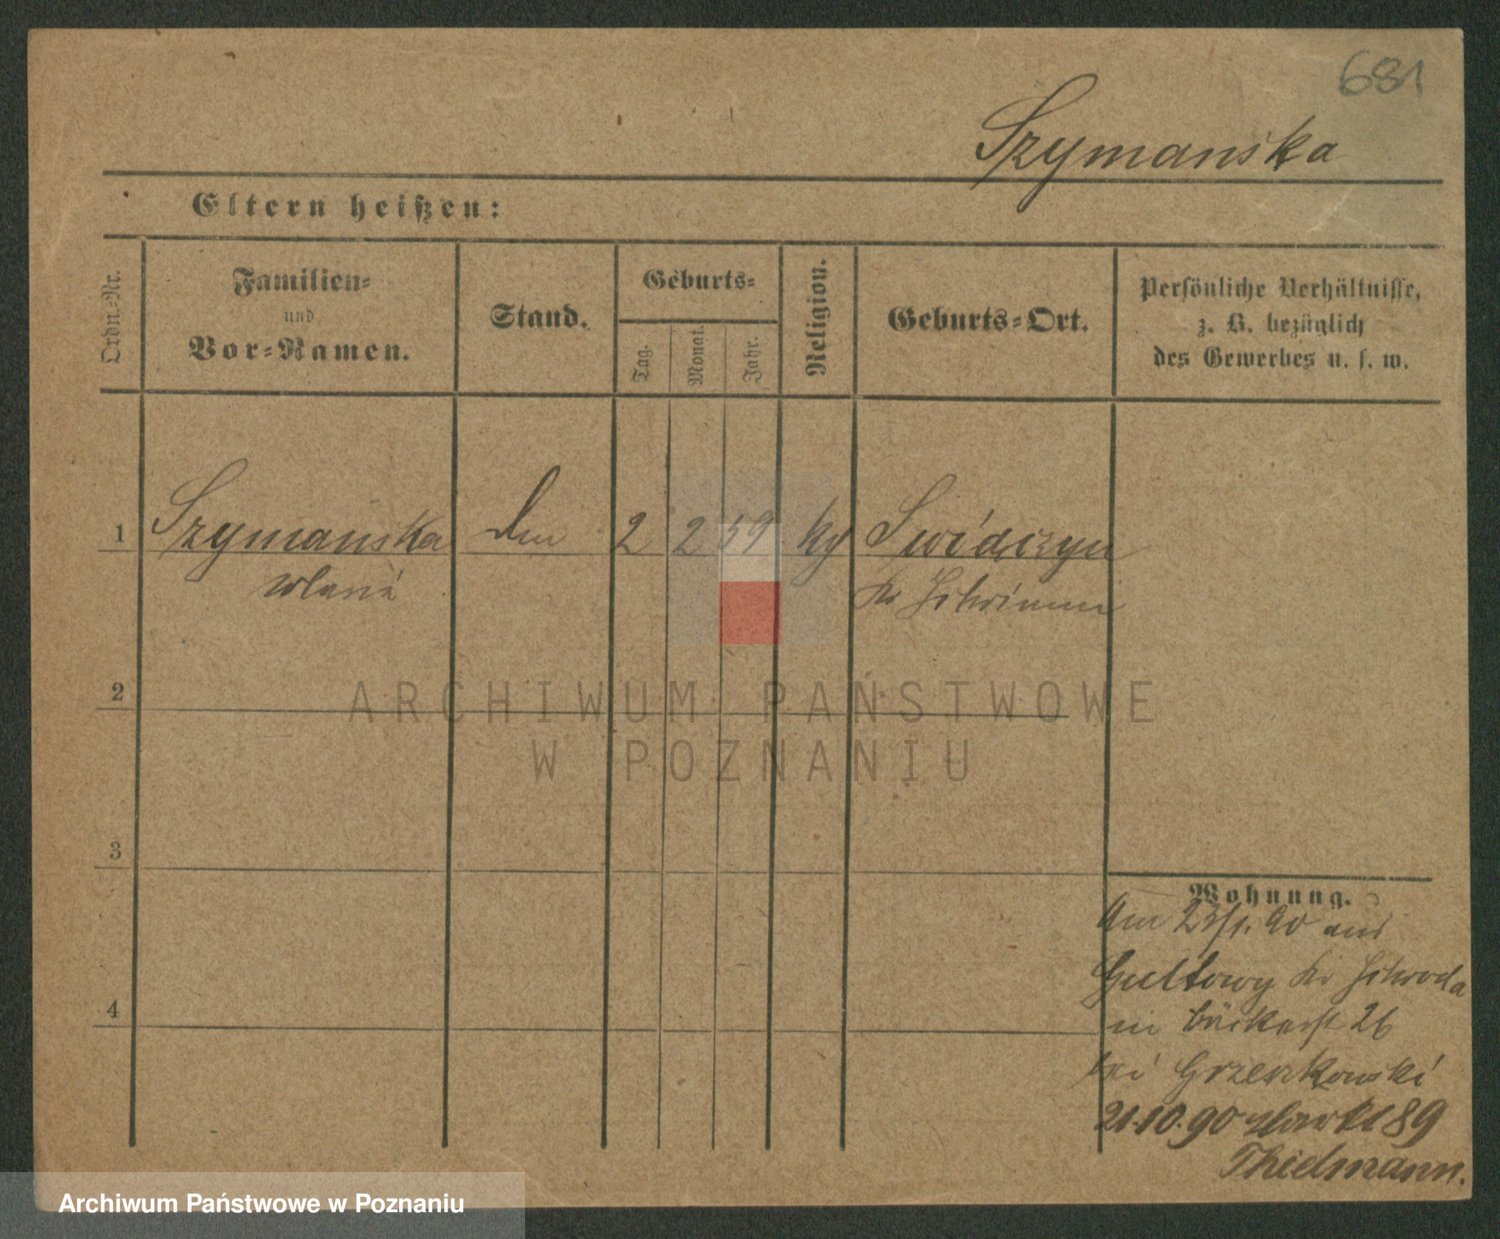 681
Szymanska
Eltern heißen:
Ordn.-Nr.
Familien-
und
Vor-Namen.
Stand.
Geburts-
Tag.
Monat.
Jahr.
Religion.
Geburts-Ort.
Persönliche Verhältnisse,
z. B. bezüglich
des Gewerbes u. s. w.
1 Szymanska 2 2 59
2
3
4
ARCHIWUM PAŃSTWOWE
W POZNANIU
Wohnung.
Am 23/1. 90 aus
Gultowy Kr Schroda
in Bäckerst 26
bei Grzeszkowski
21.10.90 Markt 89
Thielmann.
Archiwum Państwowe w Poznaniu